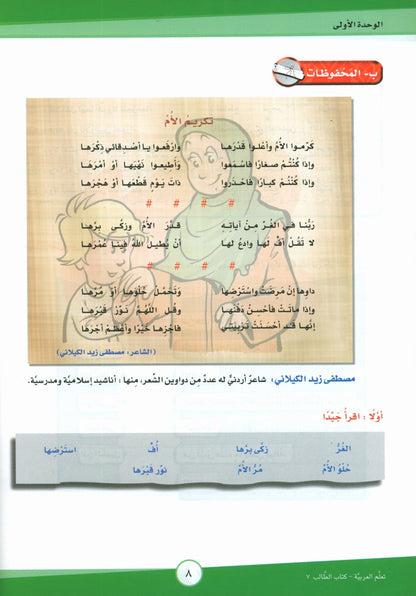 الوحدة الأولى
ب- المَحْفوظات
تكريم الأُمّ
كَرِّموا الأُمَّ وأَعْلوا قَدْرَها وارفَعوا يا أَصْدِقائي ذِكْرَها
وإذا كُنْتُمْ صغارًا فاسْمَعوا وأَطيعوا نَهْيَها أوْ أَمْرَها
وإذا كُنْتُمْ كبارًا فاحْذَروا ذاتَ يَوْمٍ قَطْعَها أوْ هَجْرَها
# # # #
رَبُّنا في الغُرِّ مِنْ آياتِهِ قَدَّرَ الأُمَّ وزكّى بِرَّها
لا تَقُلْ أُفٍّ لَها وادعُ لَها أنْ يُطيلَ اللهُ فينا عُمْرَها
# # # #
داوِها إنْ مَرِضَتْ واسْتَرْضِها وتَحَمَّلْ حُلْوَها أوْ مُرَّها
وإذا ماتَتْ فأَحْسِنْ دَفْنَها وقُلِ اللّهُمَّ نَوِّرْ قَبْرَها
إنّها قَدْ أَحْسَنَتْ تَرْبِيَتي فاجْزِها خَيْرًا وأَعْظِمْ أَجْرَها
(الشاعر: مصطفى زيد الكيلاني)
مصطفى زيد الكيلاني: شاعرٌ أردنيٌّ له عددٌ مِن دواوين الشِّعر، مِنها: أناشيد إسلاميّة ومدرسيّة.
أوّلًا: اقرأ جَيِّدًا
الغُرُّ زكّى بِرَّها أُفّ اسْتَرْضِها
حُلْوُ الأُمِّ مُرُّ الأُمِّ نَوِّرْ قَبْرَها
٨
تعلّم العربيّة - كتاب الطّالب ٧